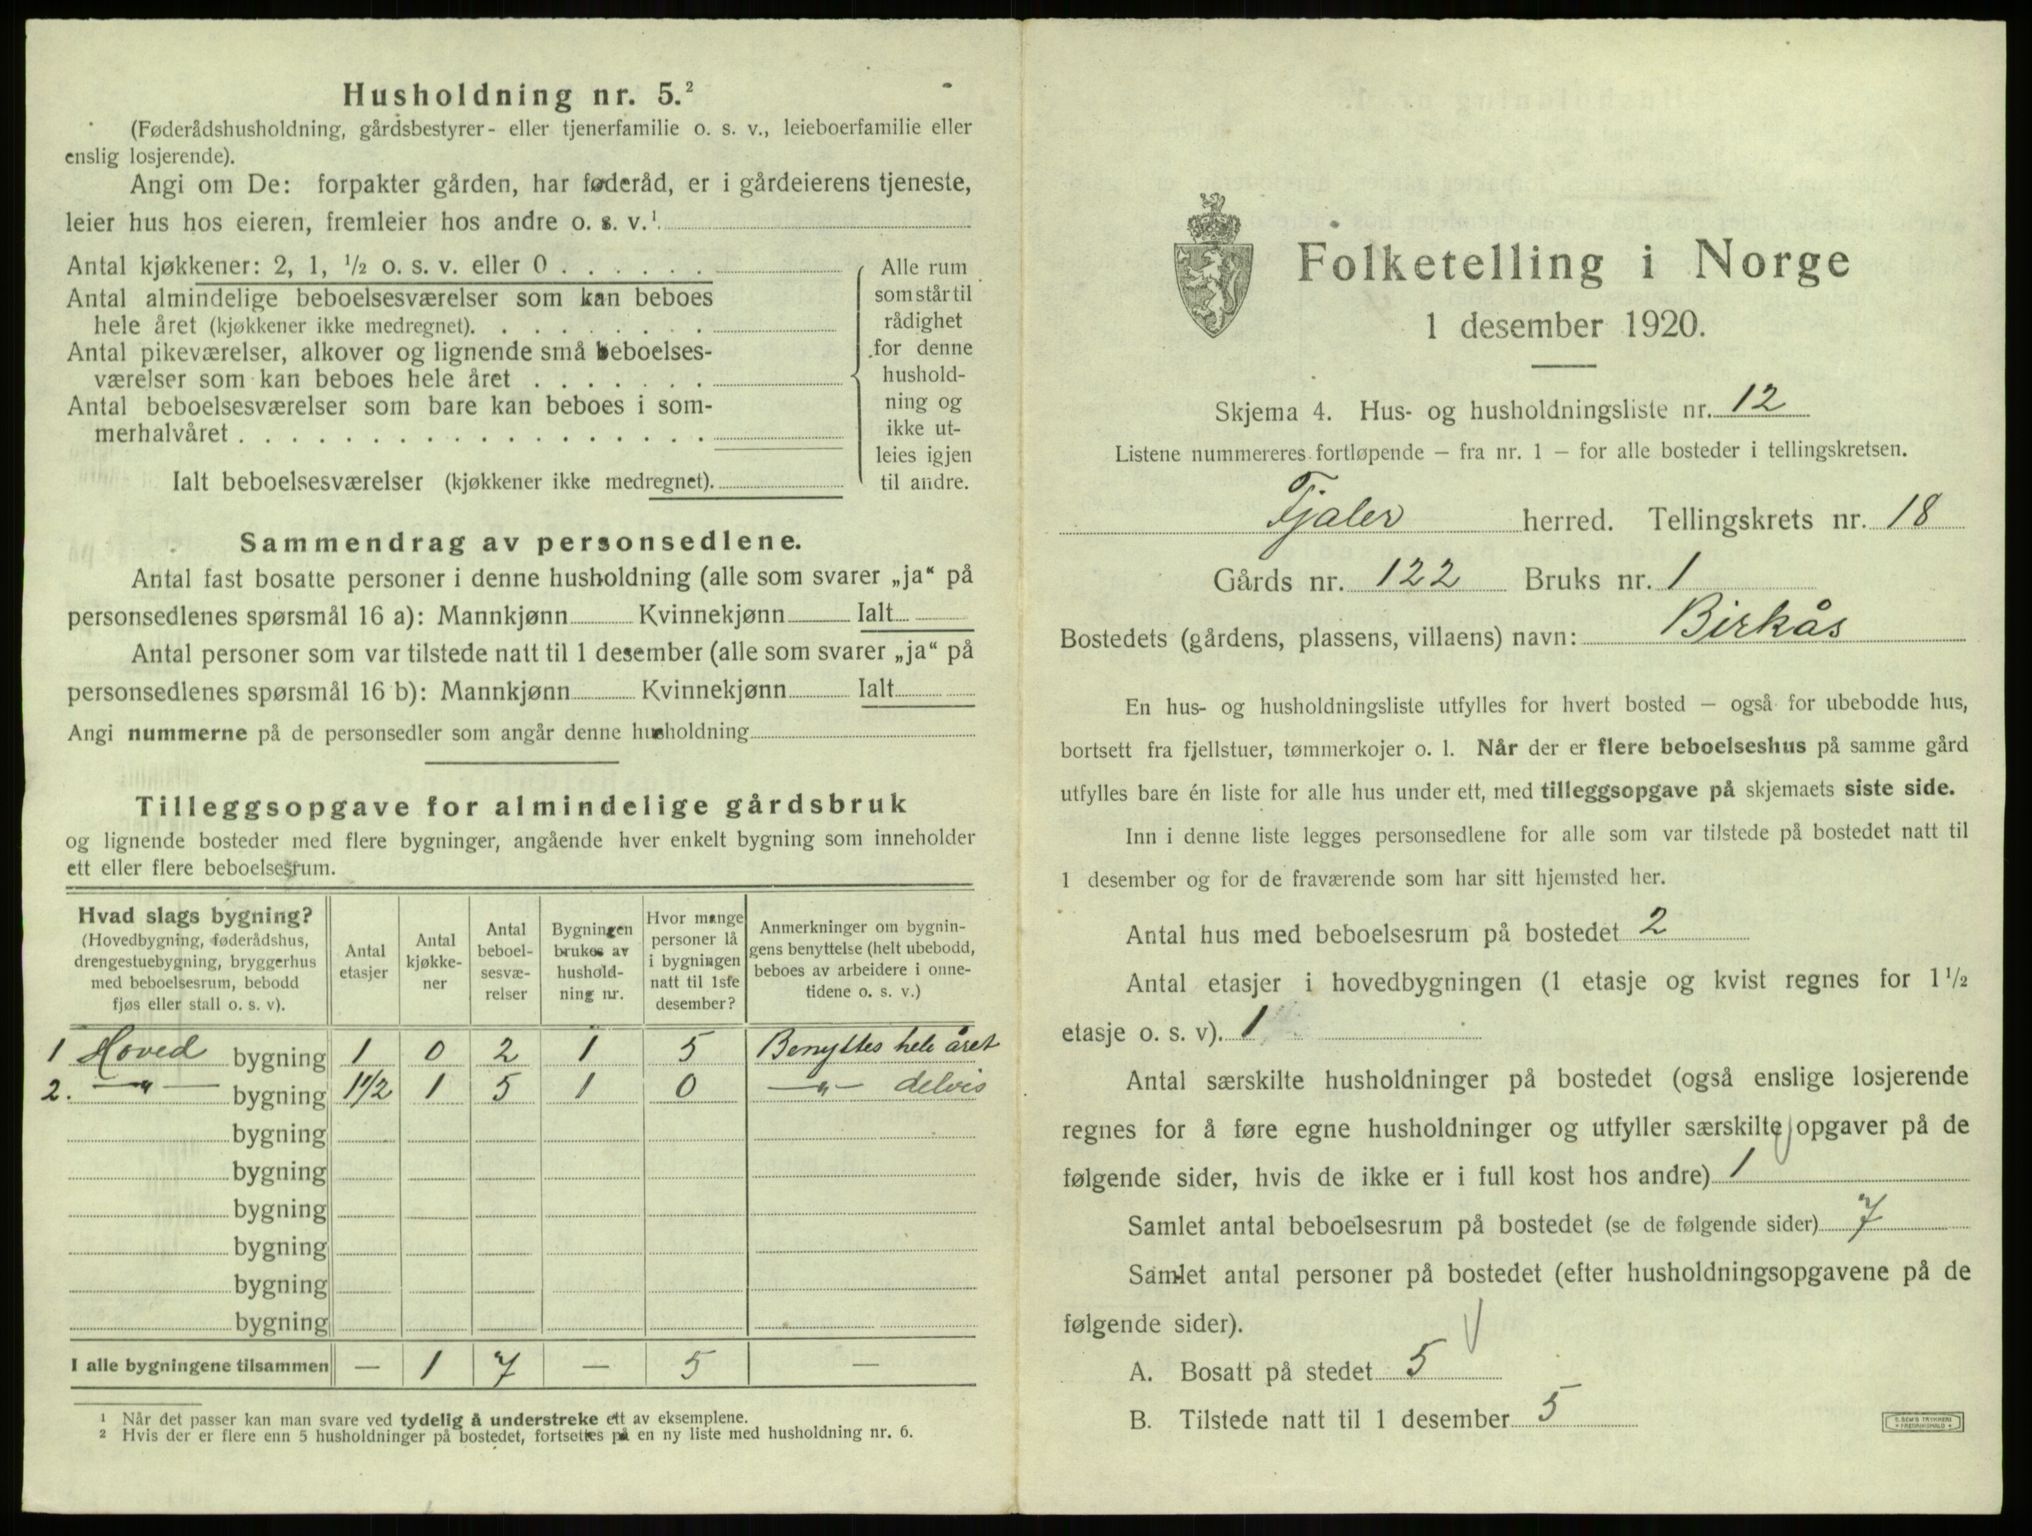 Husholdning nr. 5.²
(Føderådshusholdning, gårdsbestyrer- eller tjenerfamilie o. s. v., leieboerfamilie eller
enslig losjerende).
Angi om De: forpakter gården, har føderåd, er i gårdeierens tjeneste,
leier hus hos eieren, fremleier hos andre o. s. v.¹
Antal kjøkkener: 2, 1, ½ o. s. v. eller 0 . . . . . .
Antal almindelige beboelsesværelser som kan beboes
hele året (kjøkkener ikke medregnet). . . . . . . . .
Antal pikeværelser, alkover og lignende små beboelses-
værelser som kan beboes hele året . . . . . . .
Antal beboelsesværelser som bare kan beboes i som-
merhalvåret . . . . . . . . . . . . . . . . . .
Ialt beboelsesværelser (kjøkkener ikke medregnet).
Alle rum
som står til
rådighet
for denne
hushold-
ning og
ikke ut-
leies igjen
til andre.
Sammendrag av personsedlene.
Antal fast bosatte personer i denne husholdning (alle som svarer „ja“ på
personsedlenes spørsmål 16 a): Mannkjønn Kvinnekjønn Ialt
Antal personer som var tilstede natt til 1 desember (alle som svarer „ja“ på
personsedlenes spørsmål 16 b): Mannkjønn Kvinnekjønn Ialt
Angi nummerne på de personsedler som angår denne husholdning
Tilleggsopgave for almindelige gårdsbruk
og lignende bosteder med flere bygninger, angående hver enkelt bygning som inneholder
ett eller flere beboelsesrum.
Hvad slags bygning?
(Hovedbygning, føderådshus,
drengestuebygning, bryggerhus
med beboelsesrum, bebodd
fjøs eller stall o. s. v).
Antal
etasjer
Antal
kjøkke-
ner
Antal
beboel-
sesvæ-
relser
Bygningen
brukes av
hushold-
ning nr.
Hvor mange
personer lå
i bygningen
natt til 1ste
desember?
Anmerkninger om bygnin-
gens benyttelse (helt ubebodd,
beboes av arbeidere i onne-
tidene o. s. v.)
1 Hoved bygning 1 0 2 1 5 Benyttes hele året
2. —„— bygning 1½ 1 5 1 0 —„— delvis
bygning
bygning
bygning
bygning
bygning
bygning
I alle bygningene tilsammen — 1 7 — 5 —
¹ Når det passer kan man svare ved tydelig å understreke ett av eksemplene.
² Hvis der er flere enn 5 husholdninger på bostedet, fortsettes på en ny liste med husholdning nr. 6.
Folketelling i Norge
1 desember 1920.
Skjema 4. Hus- og husholdningsliste nr. 12
Listene nummereres fortløpende – fra nr. 1 – for alle bosteder i tellingskretsen.
Fjaler herred. Tellingskrets nr. 18
Gårds nr. 122 Bruks nr. 1
Bostedets (gårdens, plassens, villaens) navn: Birkås
En hus- og husholdningsliste utfylles for hvert bosted – også for ubebodde hus,
bortsett fra fjellstuer, tømmerkojer o. l. Når der er flere beboelseshus på samme gård
utfylles bare én liste for alle hus under ett, med tilleggsopgave på skjemaets siste side.
Inn i denne liste legges personsedlene for alle som var tilstede på bostedet natt til
1 desember og for de fraværende som har sitt hjemsted her.
Antal hus med beboelsesrum på bostedet 2
Antal etasjer i hovedbygningen (1 etasje og kvist regnes for 1½
etasje o. s. v). 1
Antal særskilte husholdninger på bostedet (også enslige losjerende
regnes for å føre egne husholdninger og utfyller særskilte opgaver på de
følgende sider, hvis de ikke er i full kost hos andre) 1
Samlet antal beboelsesrum på bostedet (se de følgende sider) 7
Samlet antal personer på bostedet (efter husholdningsopgavene på de
følgende sider).
A. Bosatt på stedet 5
B. Tilstede natt til 1 desember 5